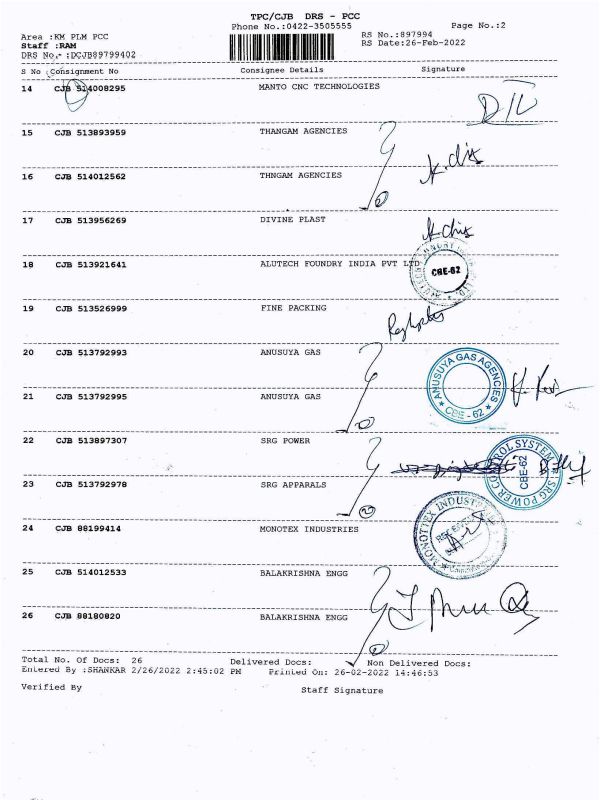 TPC/CJB DRS - PCC
Phone No.:0422-3505555 Page No.:2
Area :KM PLM PCC RS No.:897994
Staff :RAM RS Date:26-Feb-2022
DRS No.- :DCJB89799402
S No Consignment No Consignee Details Signature
14 CJB 514008295 MANTO CNC TECHNOLOGIES
15 CJB 513893959 THANGAM AGENCIES
16 CJB 514012562 THNGAM AGENCIES
17 CJB 513956269 DIVINE PLAST
18 CJB 513921641 ALUTECH FOUNDRY INDIA PVT LTD
CBE-62
19 CJB 513526999 FINE PACKING
20 CJB 513792993 ANUSUYA GAS
ANUSUYA GAS AGENCIES
CBE - 62
21 CJB 513792995 ANUSUYA GAS
22 CJB 513897307 SRG POWER
SRG POWER CONTROL SYSTEM
CBE-62
23 CJB 513792978 SRG APPARALS
24 CJB 88199414 MONOTEX INDUSTRIES
25 CJB 514012533 BALAKRISHNA ENGG
26 CJB 88180820 BALAKRISHNA ENGG
Total No. Of Docs: 26 Delivered Docs: Non Delivered Docs:
Entered By :SHANKAR 2/26/2022 2:45:02 PM Printed On: 26-02-2022 14:46:53
Verified By Staff Signature